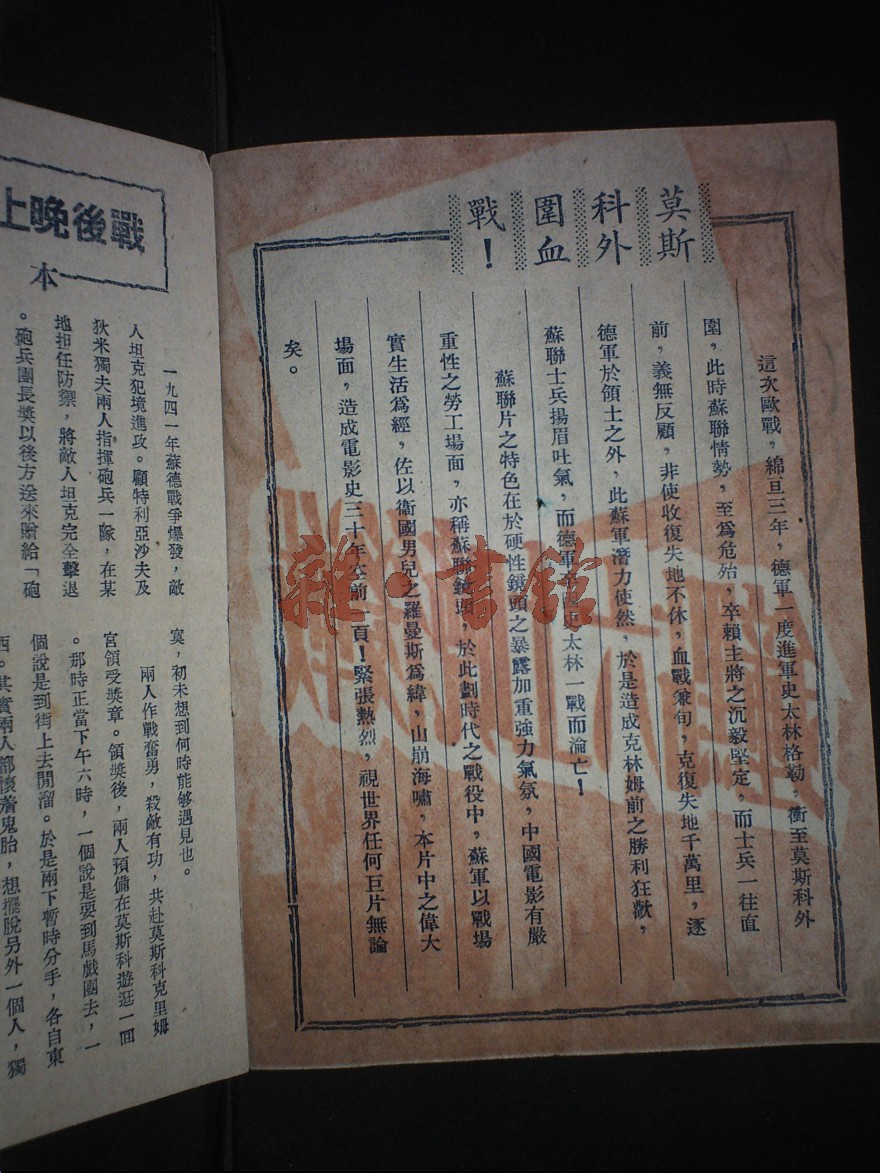 莫斯
科外
圍血
戰！
這次歐戰，綿亘三年，德軍一度進軍史太林格勒，衝至莫斯科外
圍，此時蘇聯情勢，至爲危殆，卒賴主將之沉毅堅定，而士兵一往直
前，義無反顧，非使收復失地不休，血戰兼旬，克復失地千萬里，逐
德軍於領土之外，此蘇軍潛力使然，於是造成克林姆前之勝利狂歡，
蘇聯士兵揚眉吐氣，而德軍史太林一戰而淪亡！
蘇聯片之特色在於硬性鏡頭之暴露加重強力氣氛，中國電影有嚴
重性之勞工場面，亦稱蘇聯鏡頭，於此劃時代之戰役中，蘇軍以戰場
實生活爲經，佐以衛國男兒之羅曼斯爲緯，山崩海嘯，本片中之偉大
場面，造成電影史三十年空前一頁！緊張熱烈，視世界任何巨片無論
矣。
戰後晚上
本
一九四一年蘇德戰爭爆發，敵
人坦克犯境進攻。顧特利亞沙夫及
狄米獨夫兩人指揮砲兵一隊，在某
地担任防禦，將敵人坦克完全擊退
。砲兵團長獎以後方送來贈給「砲
寞，初未想到何時能够遇見也。
兩人作戰奮勇，殺敵有功，共赴莫斯科克里姆
宮領受獎章。領獎後，兩人預備在莫斯科遊逛一回
。那時正當下午六時，一個說是要到馬戲團去，一
個說是到街上去閒溜。於是兩下暫時分手，各自東
西。其實兩人都懷着鬼胎，想擺脫另外一個人，獨
雜·書館